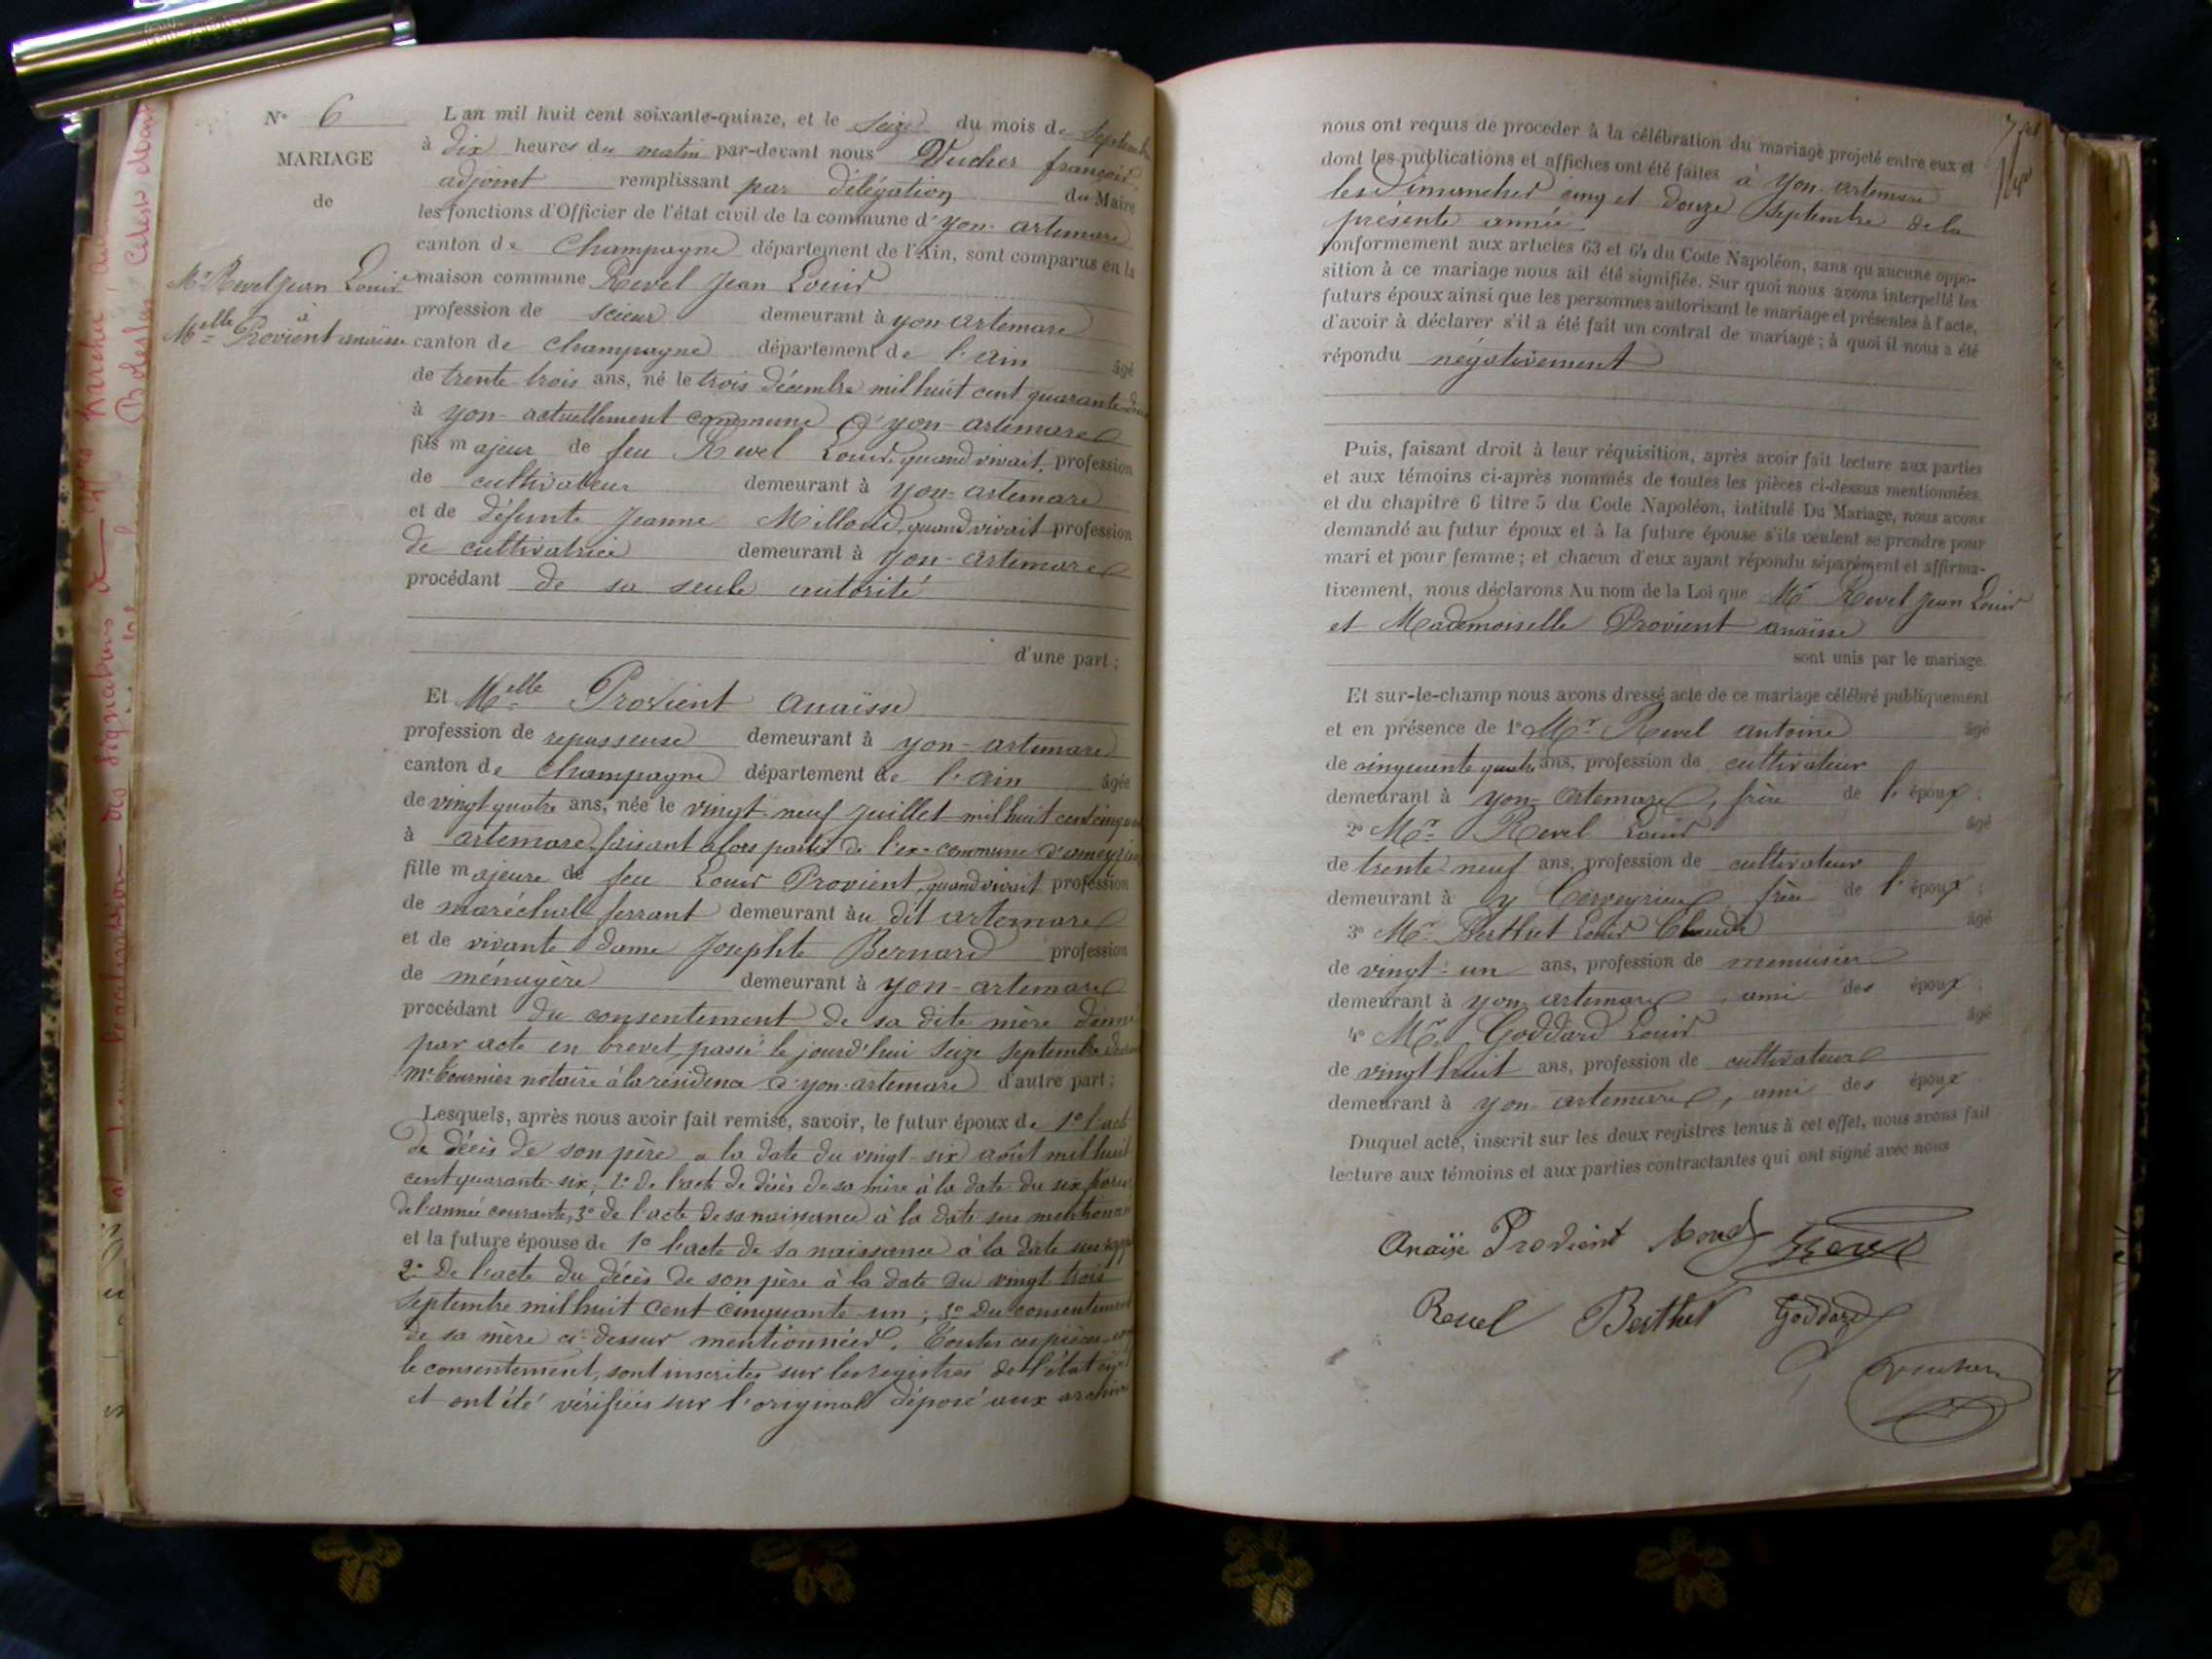 N° 6
MARIAGE
de
Mr Revel Jean Louis
à
Melle Provient anaïsse
L'an mil huit cent soixante-quinze, et le seize du mois de Septembre
à dix heures du matin par-devant nous Vucher françois,
adjoint remplissant par délégation du Maire
les fonctions d'Officier de l'état civil de la commune d'yon-artemare
canton de Champagne département de l'Ain, sont comparus en la
maison commune Revel Jean Louis
profession de scieur demeurant à yon-artemare
canton de Champagne département de l'ain âgé
de trente-trois ans, né le trois décembre mil huit cent quarante-
à yon-actuellement commune d'yon-artemare
fils majeur de feu Revel Louis, quand vivait, profession
de cultivateur demeurant à yon-artemare
et de défunte Jeanne Milloud, quand vivait profession
de cultivatrice demeurant à yon-artemare
procédant de sa seule autorité
d'une part ;
Et Melle Provient anaïsse
profession de repasseuse demeurant à yon-artemare
canton de Champagne département de l'ain âgée
de vingt quatre ans, née le vingt-neuf juillet mil huit cent
à artemare, faisant alors partie de l'ex-commune d'ameyzieu
fille majeure de feu Louis Provient, quand vivait profession
de maréchal ferrant demeurant au dit artemare
et de vivante dame Josephte Bernard profession
de ménagère demeurant à yon-artemare
procédant du consentement de sa dite mère donné
par acte en brevet, passé le jourd'hui seize septembre
Mr Tournier notaire à la résidence d'yon-artemare d'autre part ;
Lesquels, après nous avoir fait remise, savoir, le futur époux de 1° l'acte
de décès de son père a la date du vingt-six août mil huit
cent quarante-six, 2° de l'acte de décès de sa mère à la date du six
de l'année courante, 3° de l'acte de sa naissance à la date sus mentionnée
et la future épouse de 1° l'acte de sa naissance à la date
2° de l'acte du décès de son père à la date du vingt trois
septembre mil huit cent cinquante-un ; 3° du consentement
de sa mère ci-dessus mentionnées. Toutes ces pièces
le consentement, sont inscrites sur les registres de l'état
et ont été vérifiées sur l'original déposé aux archives
nous ont requis de proceder à la célébration du mariage projeté entre eux et
dont les publications et affiches ont été faites à yon-artemare
les Dimanches cinq et douze Septembre de la
présente année.
conformement aux articles 63 et 64 du Code Napoléon, sans qu'aucune oppo-
sition à ce mariage nous ait été signifiée. Sur quoi nous avons interpellé les
futurs époux ainsi que les personnes autorisant le mariage et présentes à l'acte,
d'avoir à déclarer s'il a été fait un contrat de mariage ; à quoi il nous a été
répondu négativement
Puis, faisant droit à leur réquisition, après avoir fait lecture aux parties
et aux témoins ci-après nommés de toutes les pièces ci-dessus mentionnées,
et du chapitre 6 titre 5 du Code Napoléon, intitulé Du Mariage, nous avons
demandé au futur époux et à la future épouse s'ils veulent se prendre pour
mari et pour femme ; et chacun d'eux ayant répondu séparément et affirma-
tivement, nous déclarons Au nom de la Loi que Mr Revel Jean Louis
et Mademoiselle Provient anaïsse
sont unis par le mariage.
Et sur-le-champ nous avons dressé acte de ce mariage célébré publiquement
et en présence de 1° Mr Revel antoine âgé
de cinquante quatre ans, profession de cultivateur
demeurant à yon-artemare, frère de l'époux ;
2° Mr Revel Louis âgé
de trente neuf ans, profession de cultivateur
demeurant à y Cerveyrieu, frère de l'époux ;
3° Mr Berthet Louis Claude âgé
de vingt-un ans, profession de menuisier
demeurant à yon artemare, ami des époux ;
4° Mr Goddard Louis âgé
de vingt huit ans, profession de cultivateur
demeurant à yon-artemare, ami des époux
Duquel acte, inscrit sur les deux registres tenus à cet effet, nous avons fait
lecture aux témoins et aux parties contractantes qui ont signé avec nous
Anaïse Provient
Revel Berthet Goddard
Vucher